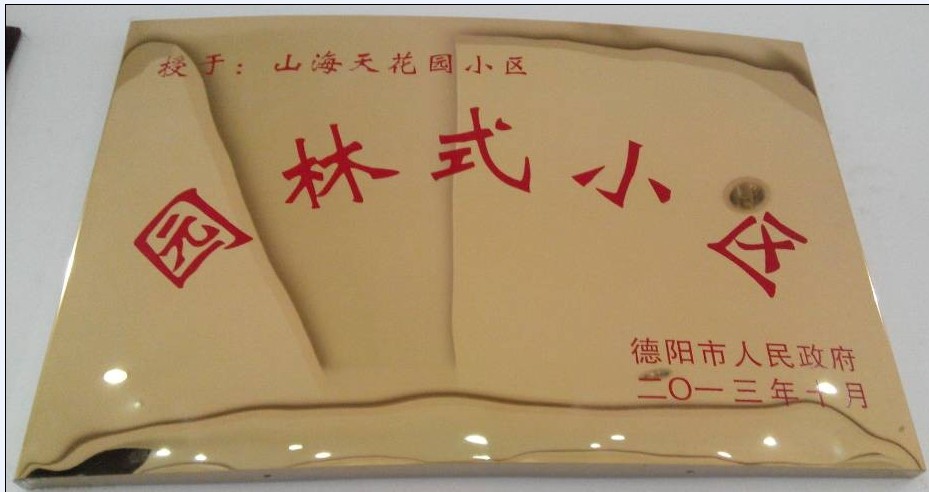 授于：山海天花园小区
园林式小区
德阳市人民政府
二〇一三年十月